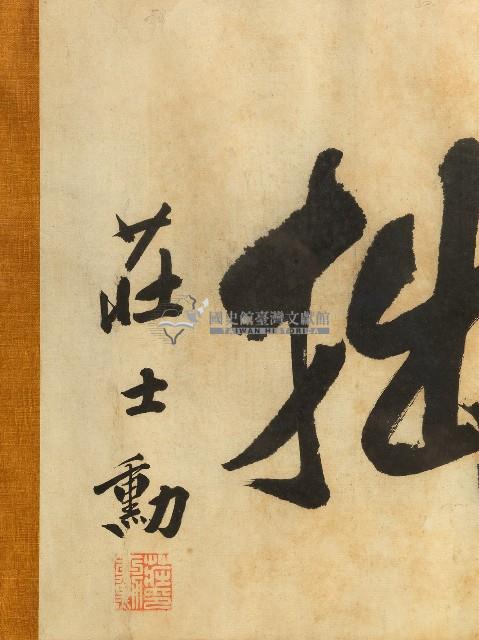 拙
莊士勳
國史館臺灣文獻館
TAIWAN HISTORICA